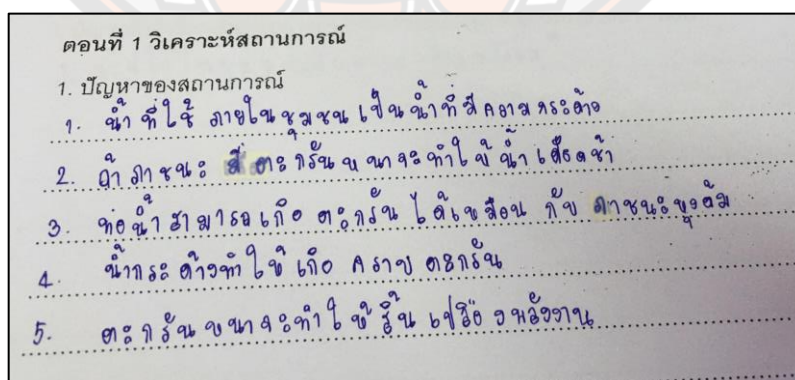 ตอนที่ 1 วิเคราะห์สถานการณ์
1. ปัญหาของสถานการณ์
1. น้ำ ที่ใช้ ภายในชุมชน เป็นน้ำที่มีความกระด้าง
2. ถ้า ภาชนะ มี ตะกรันหนาจะทำให้น้ำเดือดช้า
3. ท่อน้ำสามารถเกิด ตะกรัน ได้เหมือน กับ ภาชนะหุงต้ม
4. น้ำกระด้างทำให้ เกิด คราบ ตะกรัน
5. ตะกรันหนาจะทำให้สิ้นเปลืองพลังงาน